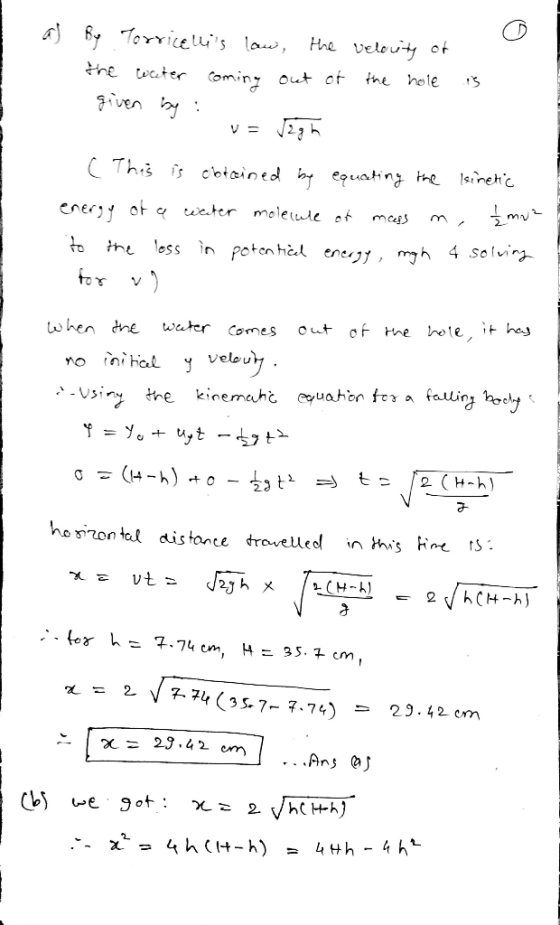 ①
a) By Torricelli's law, the velocity of
the water coming out of the hole is
given by :
v = √2gh
( This is obtained by equating the kinetic
energy of a water molecule of mass m, ½mv²
to the loss in potential energy, mgh & solving
for v )
When the water comes out of the hole, it has
no initial y velocity.
∴ Using the kinematic equation for a falling body :
Y = Y₀ + uyt - ½gt²
0 = (H-h) + 0 - ½gt² ⇒ t = √(2(H-h)/g)
horizontal distance travelled in this time is :
x = vt = √2gh × √(2(H-h)/g) = 2√h(H-h)
∴ for h = 7.74 cm, H = 35.7 cm,
x = 2 √7.74(35.7-7.74) = 29.42 cm
∴ x = 29.42 cm ...Ans (a)
(b) we got : x = 2 √h(H-h)
∴ x² = 4h(H-h) = 4Hh - 4h²